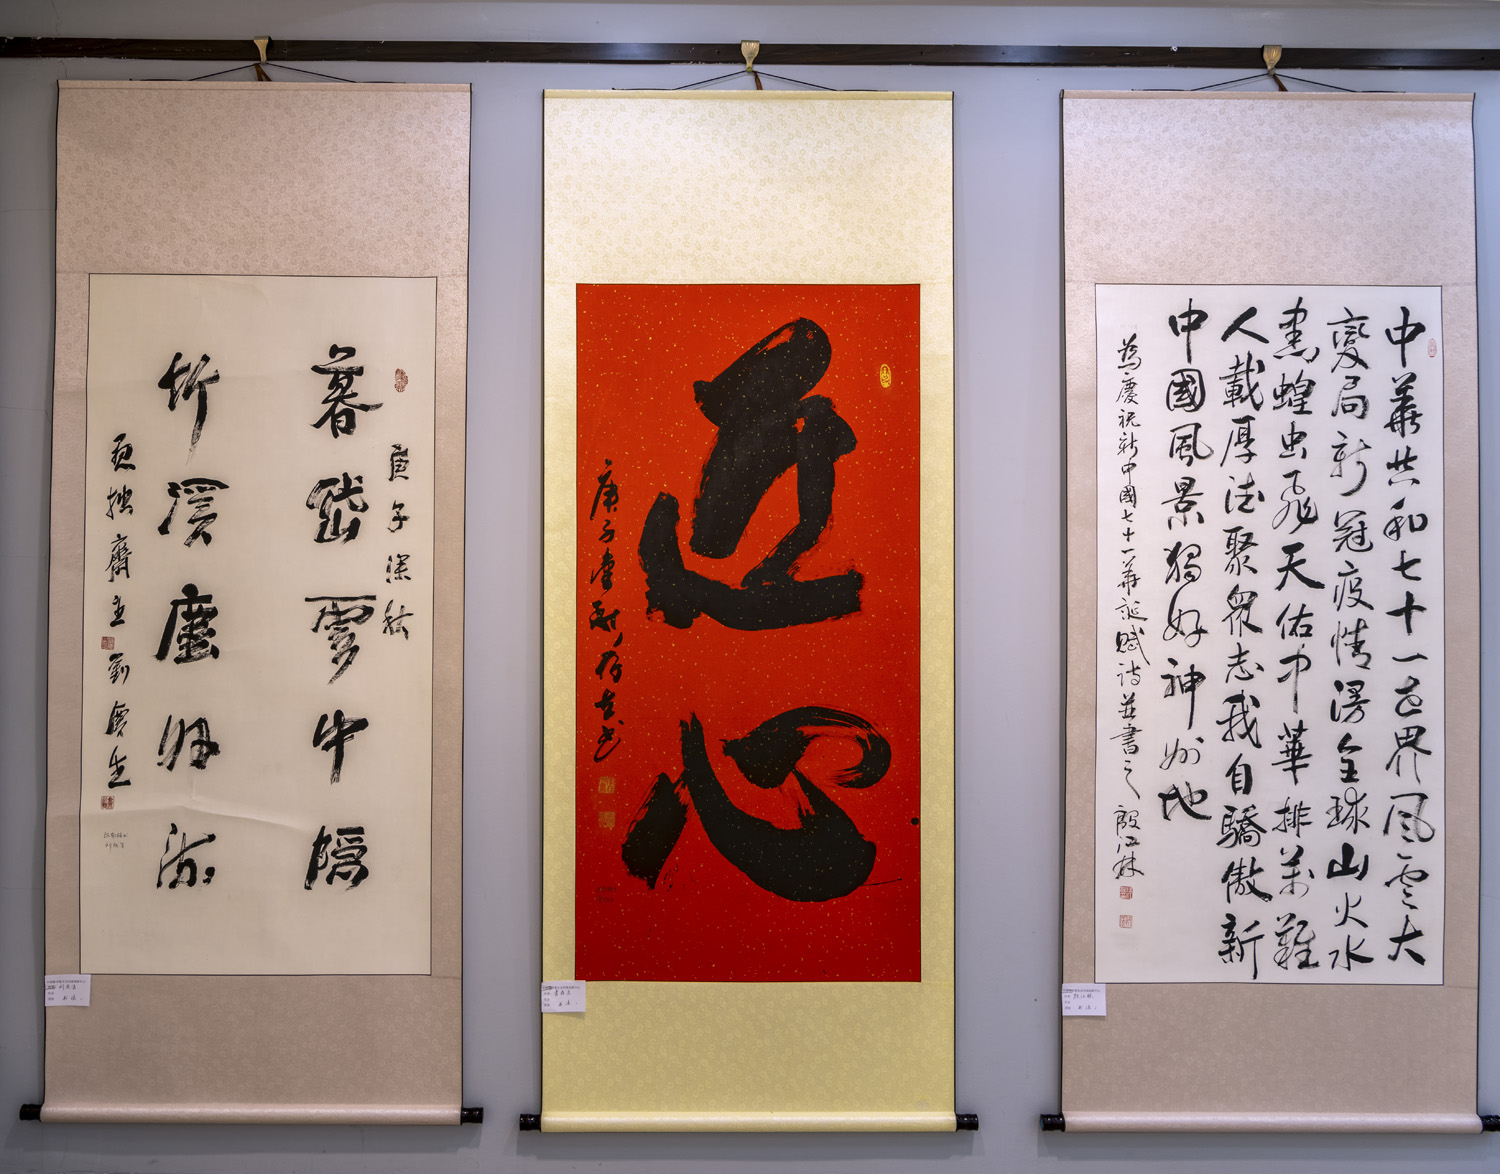 庚子深秋
暮岱雲中隱
竹溪塵归
拙齋主 劉慶生
匠心
庚子
中華共和七十一世界風雲大
變局新冠疫情漫全球山火水
患蝗虫飛天佑中華排萬難
人載厚德聚衆志我自驕傲新
中國風景獨好神州地
為慶祝新中國七十一華誕賦詩並書之 殷江林